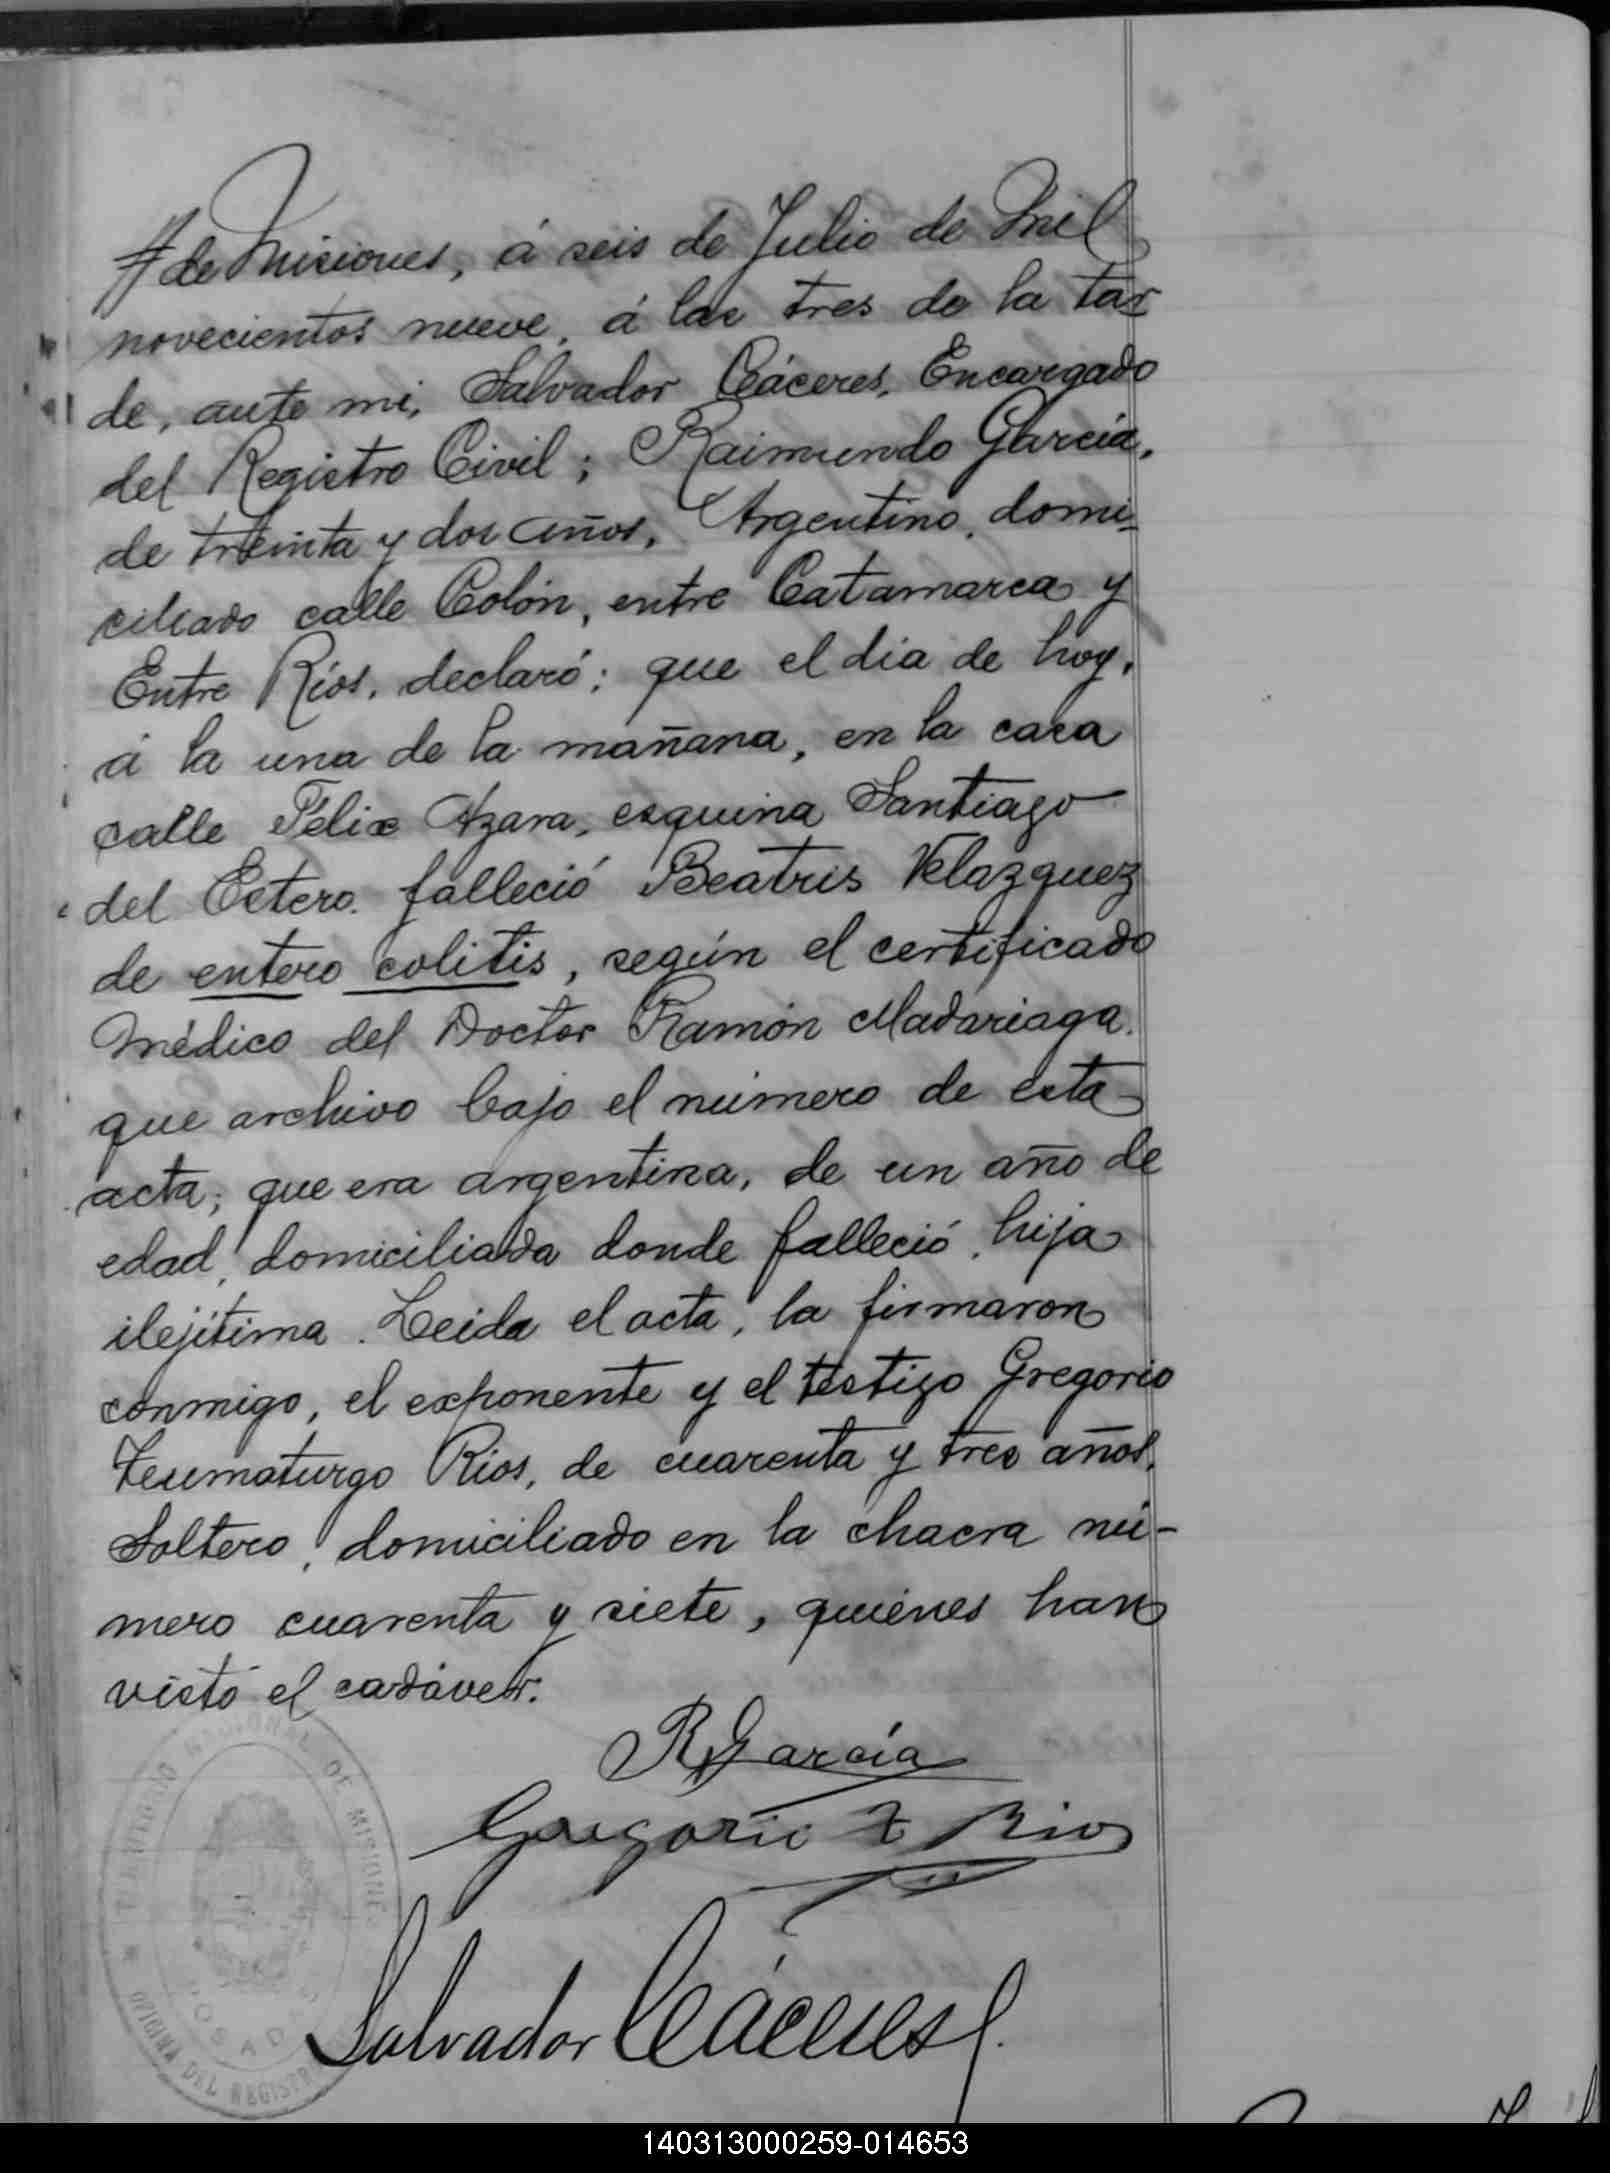 # de Misiones, á seis de Julio de Mil
novecientos nueve, á las tres de la tar
de, ante mi, Salvador Cáceres, Encargado
del Registro Civil; Raimundo García,
de treinta y dos años, Argentino, domi-
ciliado calle Colón, entre Catamarca y
Entre Ríos, declaró: que el dia de hoy,
á la una de la mañana, en la casa
calle Félix Azara, esquina Santiago
del Estero, falleció Beatris Velazquez
de entero colitis, según el certificado
Médico del Doctor Ramón Madariaga,
que archivo bajo el número de esta
acta; que era argentina, de un año de
edad, domiciliada donde falleció, hija
ilejítima. Leida el acta, la firmaron
conmigo, el exponente y el testigo Gregorio
Teumaturgo Rios, de cuarenta y tres años,
Soltero, domiciliado en la chacra nú-
mero cuarenta y siete, quiénes han
visto el cadáver.
R García
Gregorio T Rios
Salvador Cáceres
NACIONAL DE MISIONES
POSADAS
OFICINA DEL REGISTRO
140313000259-014653